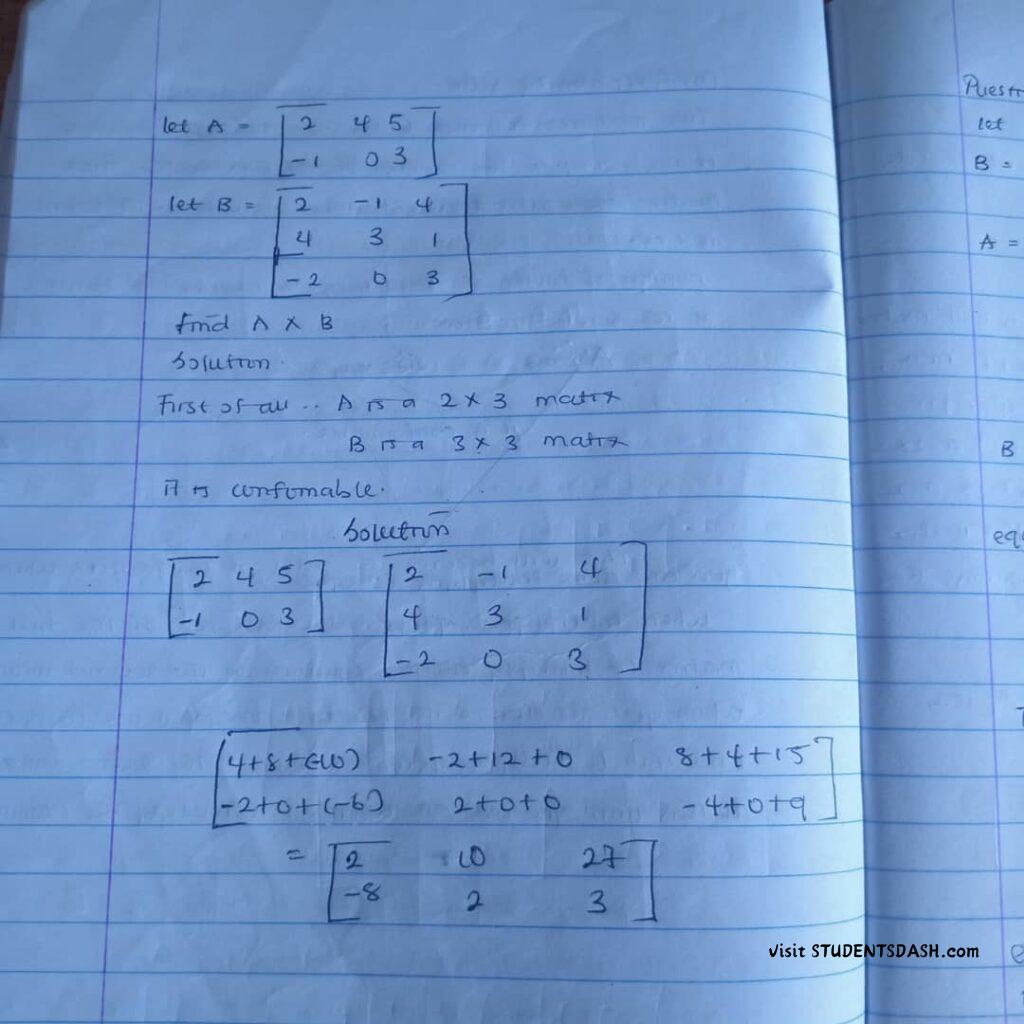 let A = [2 4 5
-1 0 3]
let B = [2 -1 4
4 3 1
-2 0 3]
find A × B
Solution.
First of all .. A is a 2 × 3 matrix
B is a 3 × 3 matrix
It is confomable.
Solution
[2 4 5] [2 -1 4
-1 0 3] 4 3 1
-2 0 3]
[4+8+(-10) -2+12+0 8+4+15
-2+0+(-6) 2+0+0 -4+0+9]
= [2 10 27
-8 2 3]
visit STUDENTSDASH.com
let
B =
A =
B